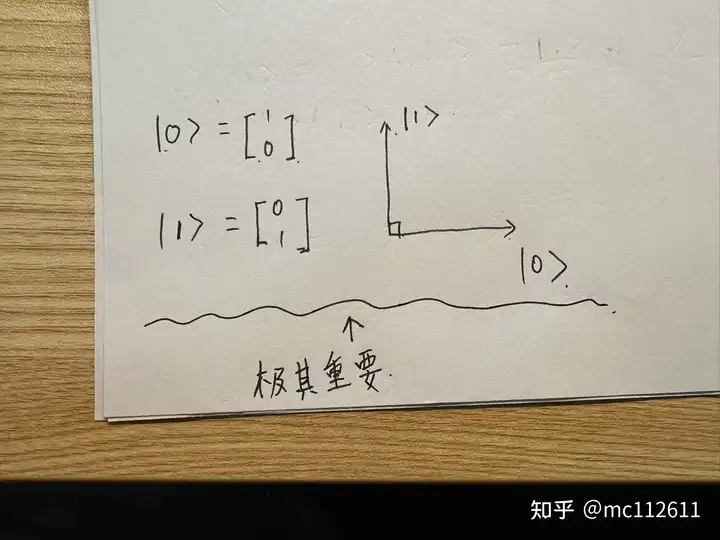 |0> = [1 0]
|1> = [0 1]
|1>
|0>
↑
极其重要.
知乎 @mc112611